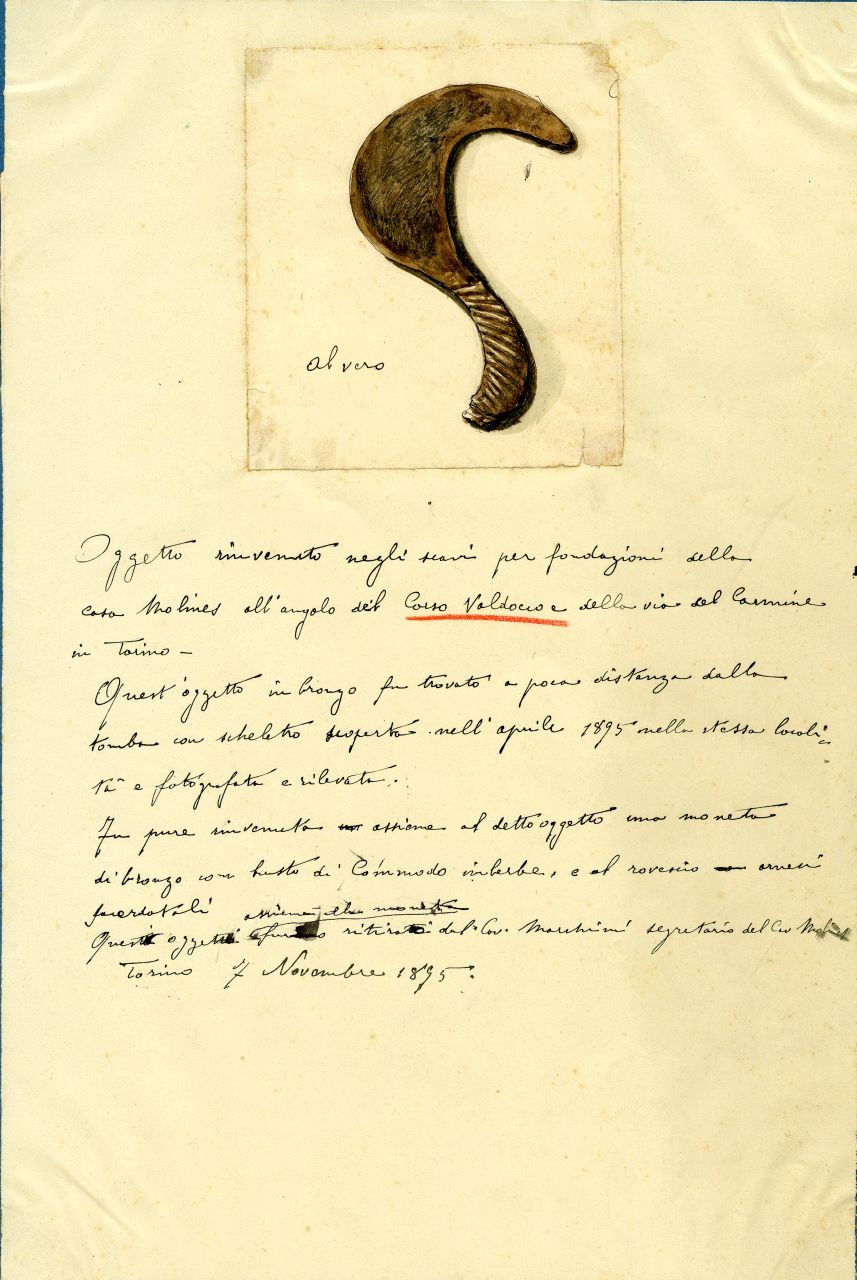 al vero
Oggetto rinvenuto negli scavi per fondazioni della
casa Molines all'angolo del Corso Valdocco e della via del Carmine
in Torino –
Quest'oggetto in bronzo fu trovato a poca distanza dalla
tomba con scheletro scoperta nell'aprile 1895 nella stessa locali-
tà e fotografata e rilevata.
Fu pure rinvenuta assieme al detto oggetto una moneta
di bronzo con busto di Commodo imberbe, e al rovescio arnesi
sacerdotali assieme alla moneta
Questi oggetti furono ritirati dal Cav. Marchini segretario del Cav Molines
Torino 7 Novembre 1895.